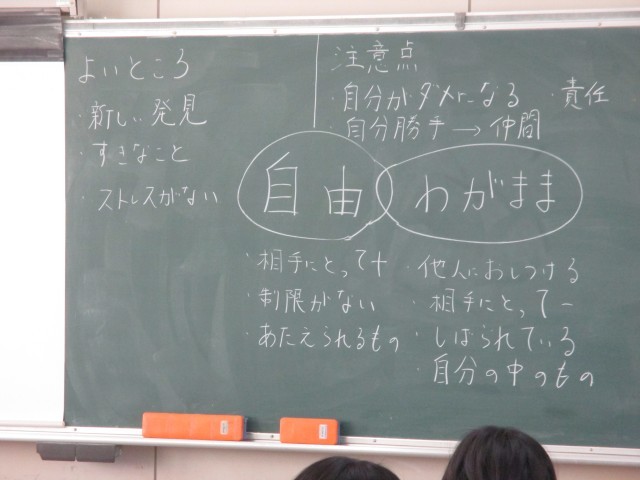 よいところ
・新しい発見
・すきなこと
・ストレスがない
注意点
・自分がダメになる ・責任
・自分勝手→仲間
自由 わがまま
・相手にとって+
・制限がない
・あたえられるもの
・他人におしつける
・相手にとって−
・しばられている
・自分の中のもの